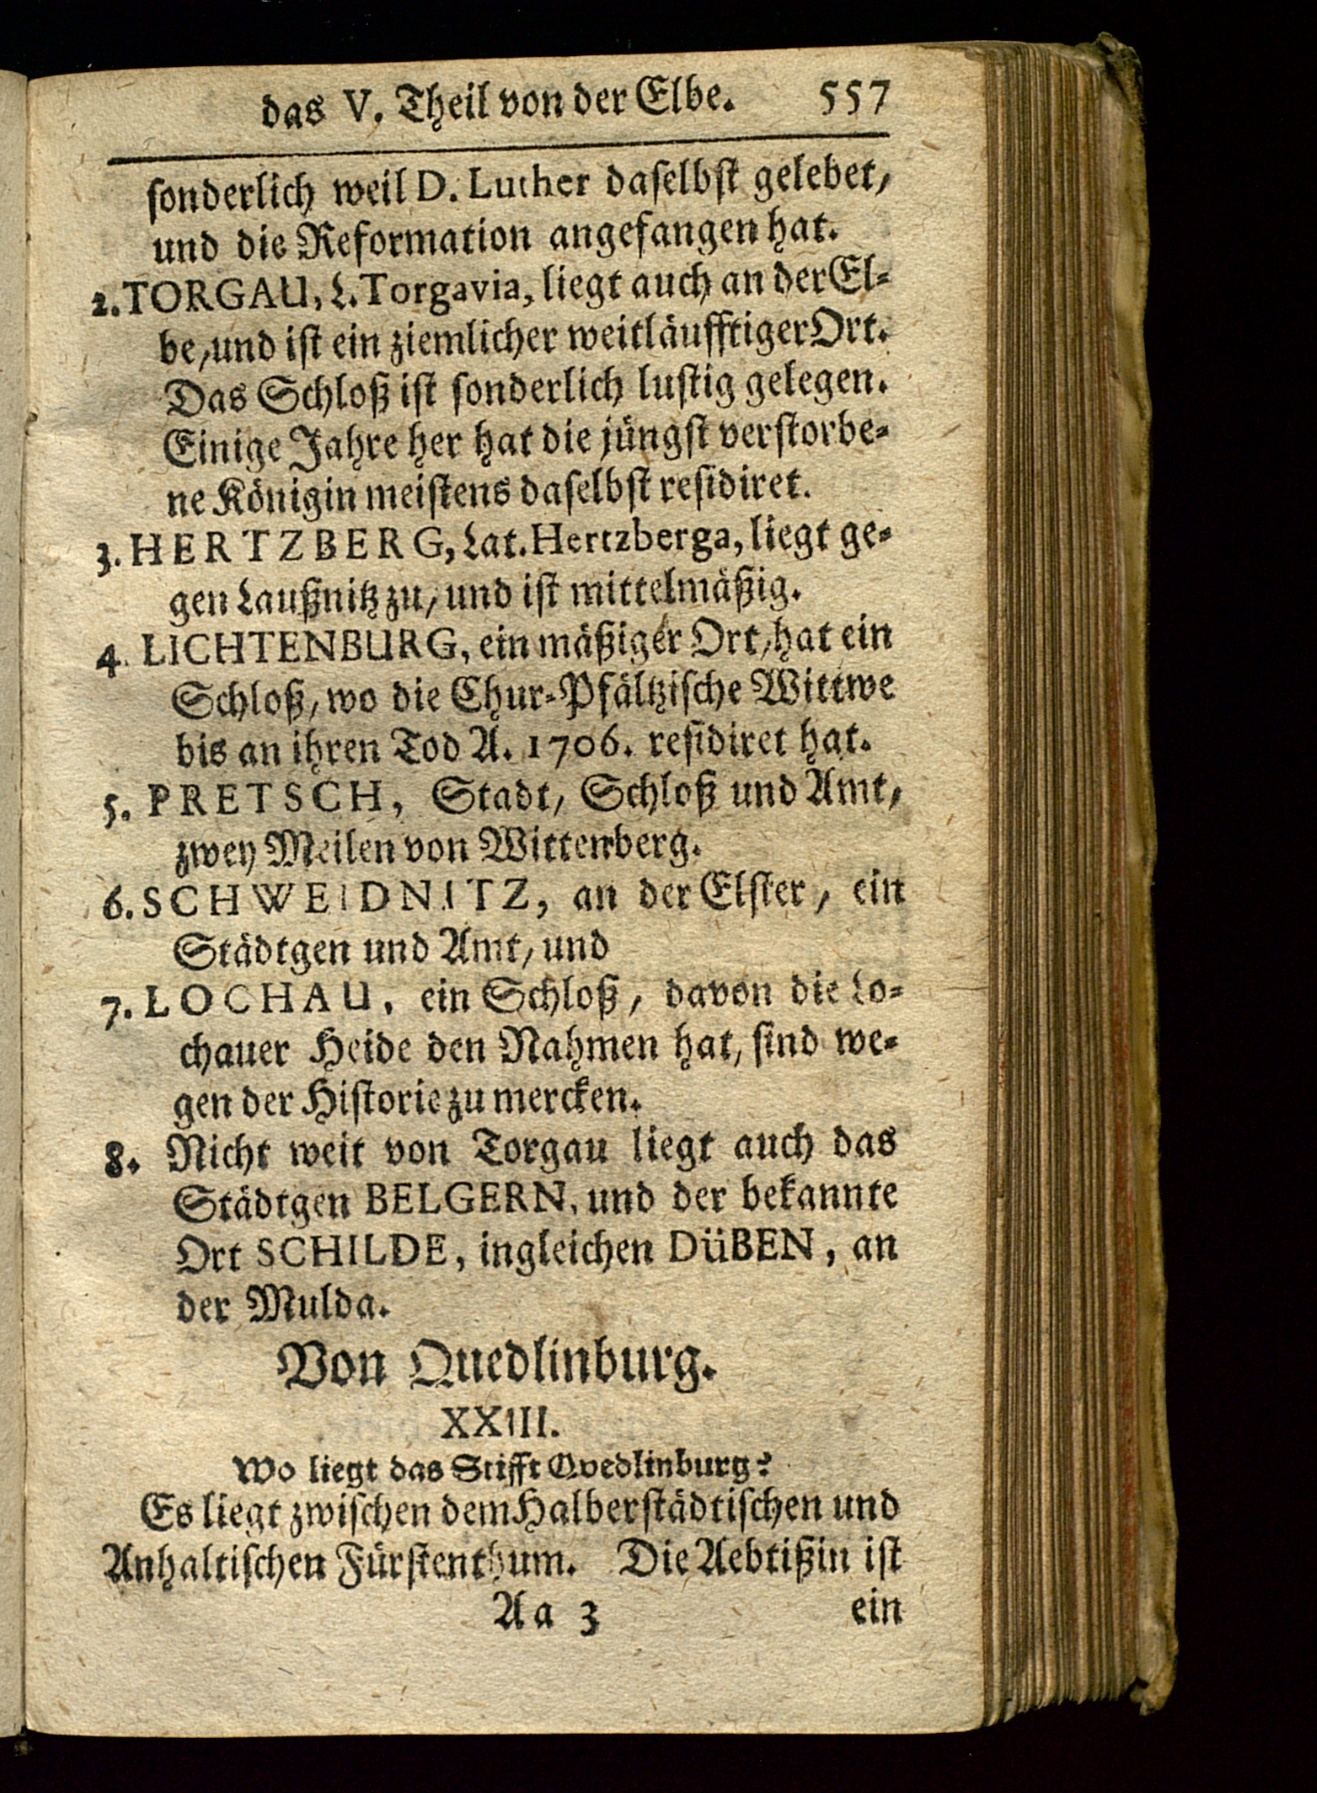 das V. Theil von der Elbe. 557
sonderlich weil D. Luther daselbst gelebet,
und die Reformation angefangen hat.
2. TORGAU, L. Torgavia, liegt auch an der El-
be, und ist ein ziemlicher weitläufftiger Ort.
Das Schloß ist sonderlich lustig gelegen.
Einige Jahre her hat die jüngst verstorbe-
ne Königin meistens daselbst residiret.
3. HERTZBERG, Lat. Hertzberga, liegt ge-
gen Laußnitz zu, und ist mittelmäßig.
4. LICHTENBURG, ein mäßiger Ort, hat ein
Schloß, wo die Chur-Pfältzische Wittwe
bis an ihren Tod A. 1706. residiret hat.
5. PRETSCH, Stadt, Schloß und Amt,
zwey Meilen von Wittenberg.
6. SCHWEIDNITZ, an der Elster, ein
Städtgen und Amt, und
7. LOCHAU, ein Schloß, davon die Lo-
chauer Heide den Nahmen hat, sind we-
gen der Historie zu mercken.
8. Nicht weit von Torgau liegt auch das
Städtgen BELGERN, und der bekannte
Ort SCHILDE, ingleichen DüBEN, an
der Mulda.
Von Quedlinburg.
XXIII.
Wo liegt das Stifft Qvedlinburg?
Es liegt zwischen dem Halberstädtischen und
Anhaltischen Fürstenthum. Die Aebtißin ist
Aa 3 ein